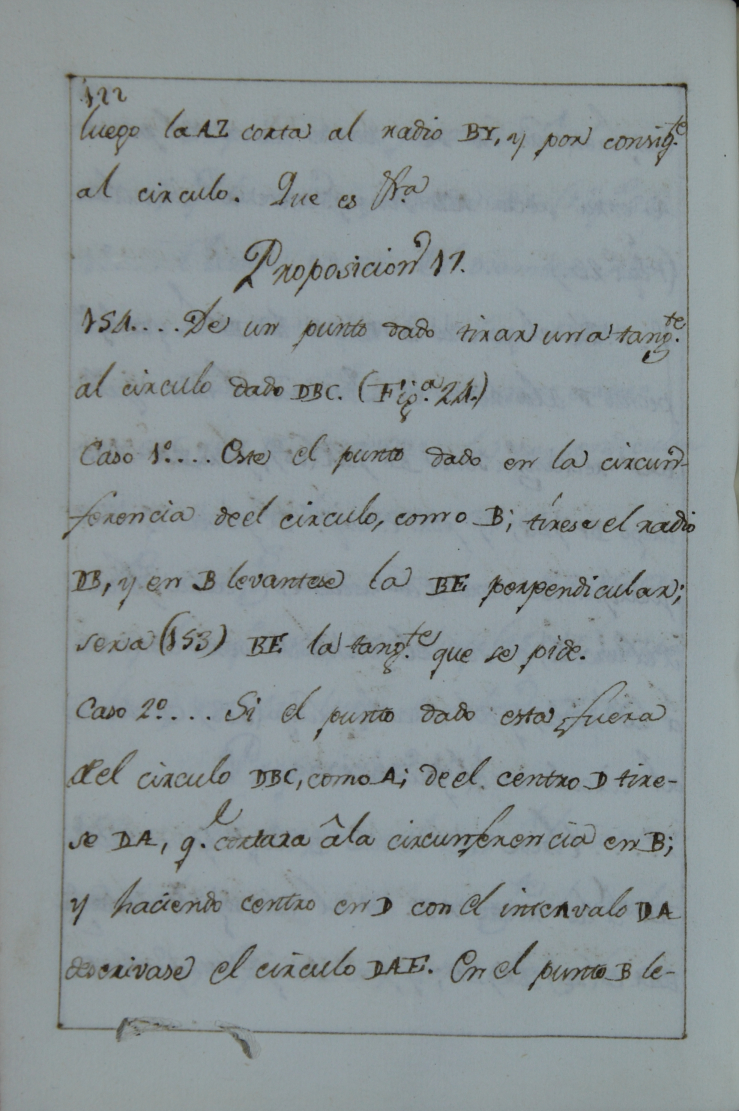 122
luego la AZ corta al radio BY, y por consig.te
al circulo. Que es &ra
Proposicion 17.
154.... De un punto dado tirar una tang.te
al circulo dado DBC. (Fig.a 24.)
Caso 1º.... Este el punto dado en la circun-
ferencia de el circulo, como B; tirese el radio
DB, y en B levantese la BE perpendicular;
sera (153) BE la tang.te que se pide.
Caso 2º.... Si el punto dado esta fuera
del circulo DBC, como A; de el centro D tire-
se DA, q.e cortara â la circunferencia en B;
y haciendo centro en D con el intervalo DA
descrivase el circulo DAE. En el punto B le-